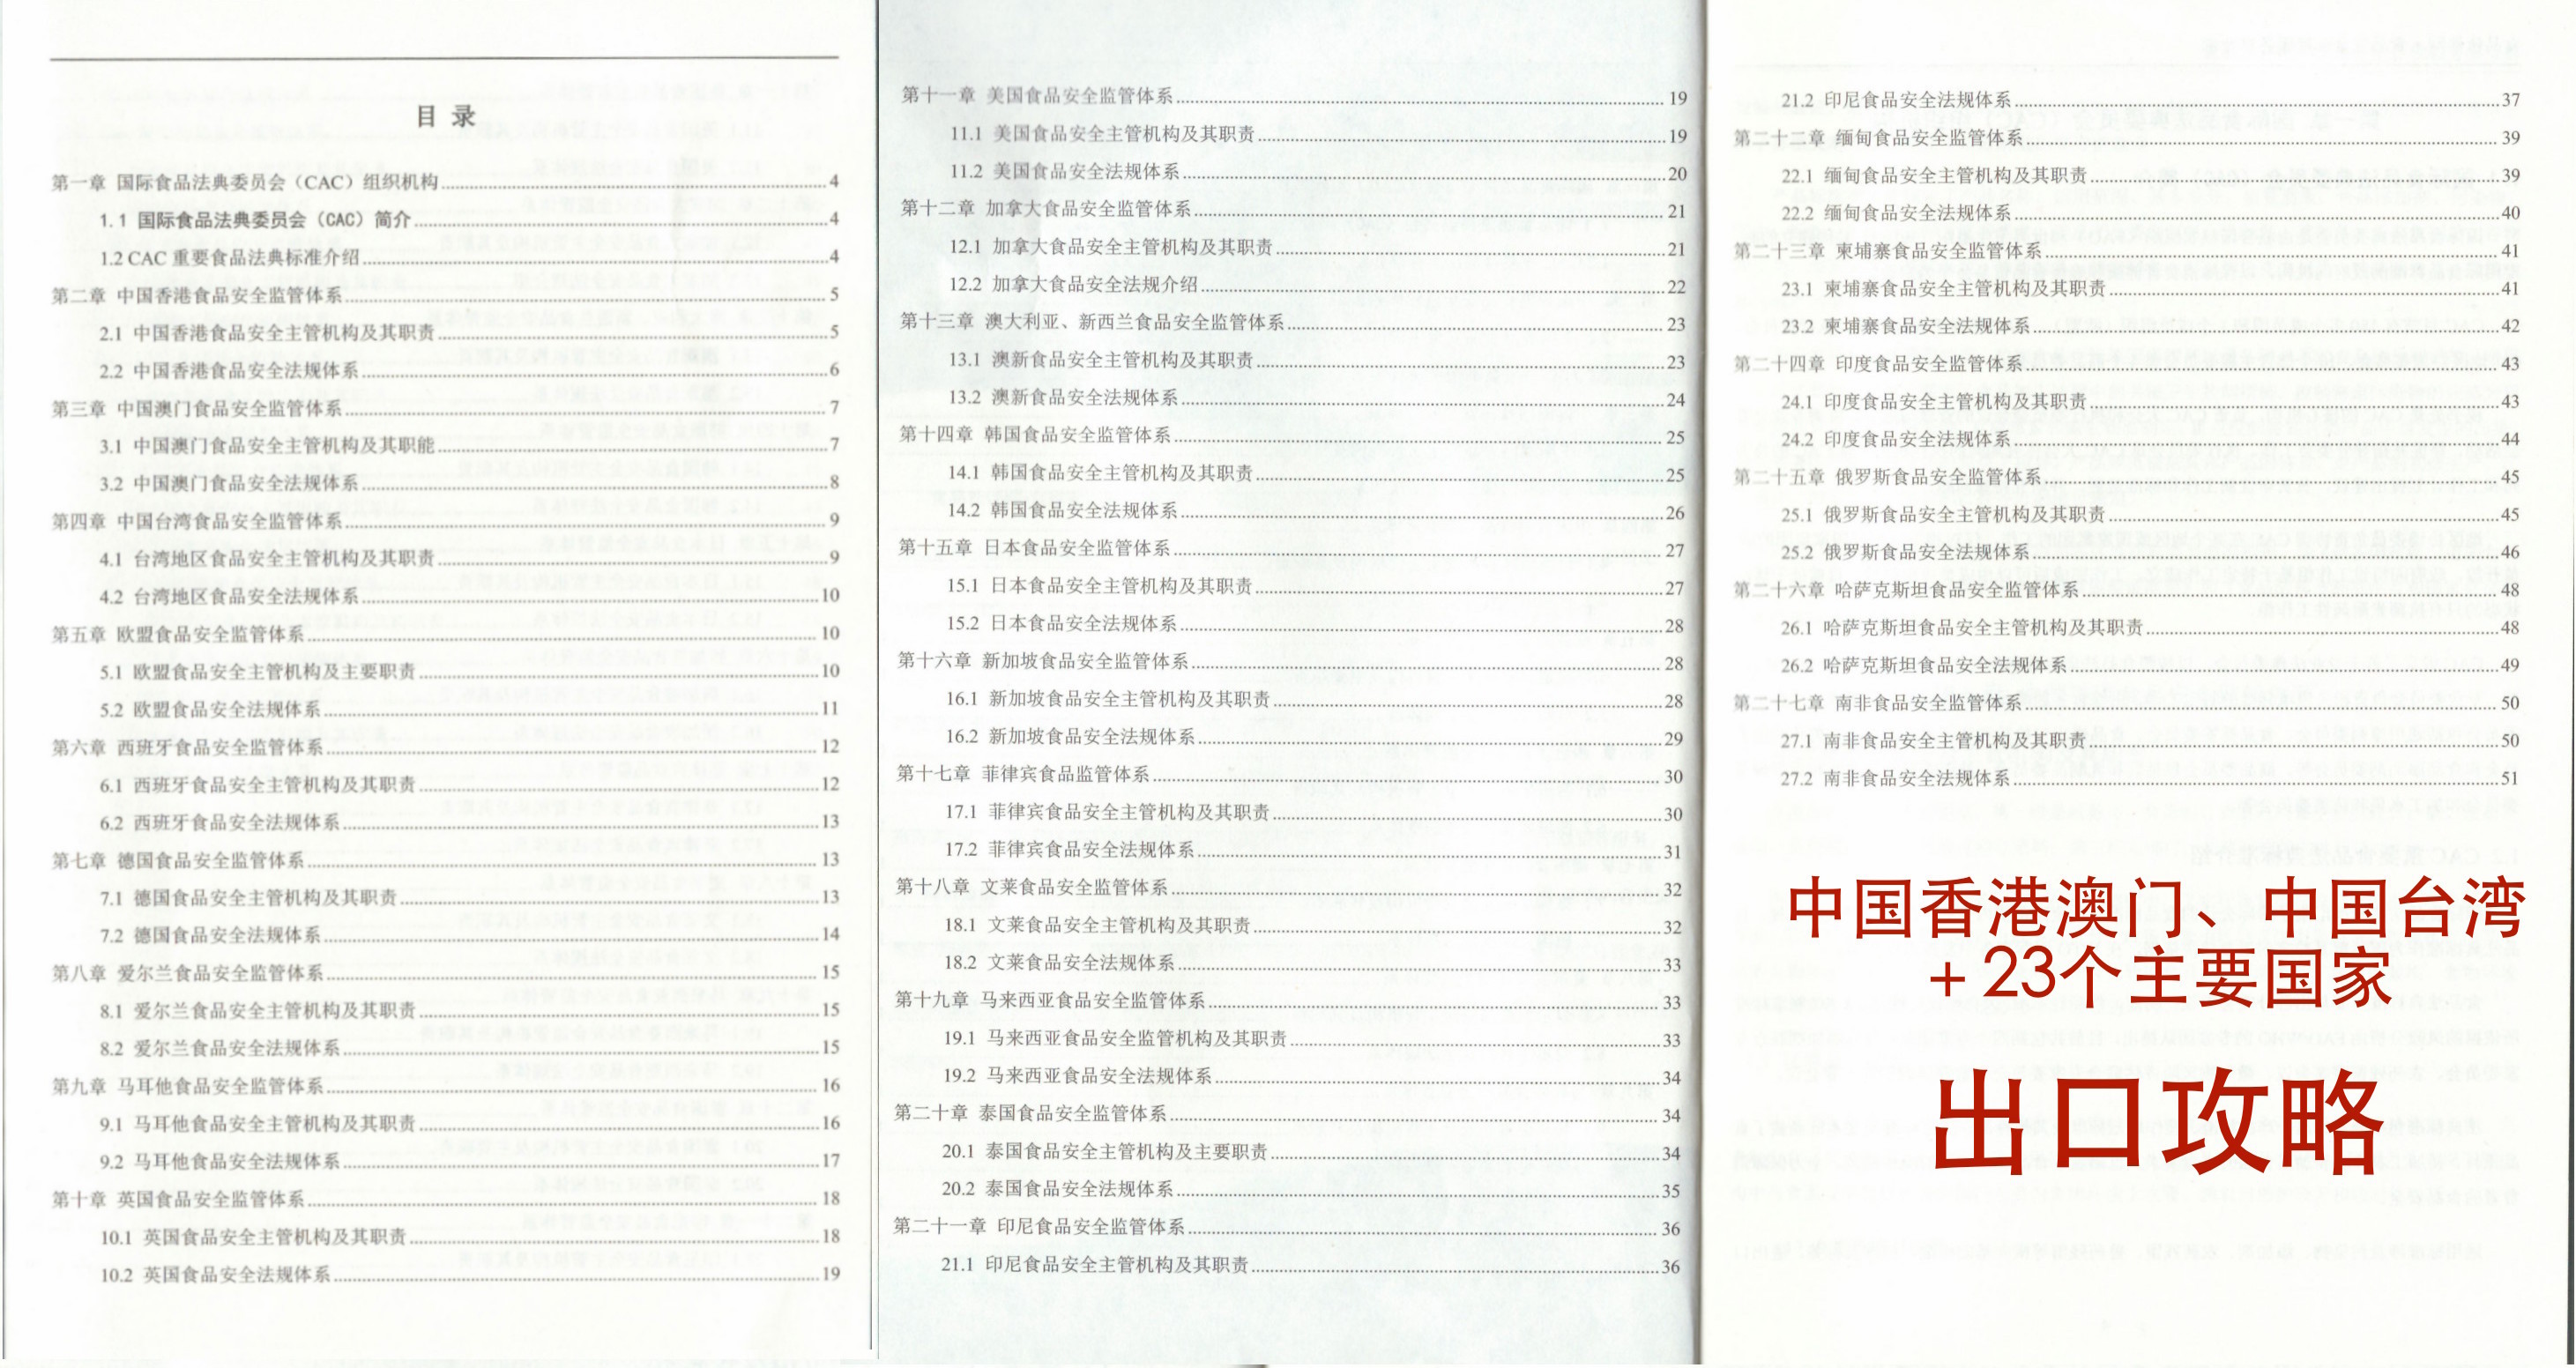 目 录
第一章 国际食品法典委员会（CAC）组织机构....................4
1.1 国际食品法典委员会（CAC）简介....................4
1.2 CAC 重要食品法典标准介绍....................4
第二章 中国香港食品安全监管体系....................5
2.1 中国香港食品安全主管机构及其职责....................5
2.2 中国香港食品安全法规体系....................6
第三章 中国澳门食品安全监管体系....................7
3.1 中国澳门食品安全主管机构及其职能....................7
3.2 中国澳门食品安全法规体系....................8
第四章 中国台湾食品安全监管体系....................9
4.1 台湾地区食品安全主管机构及其职责....................9
4.2 台湾地区食品安全法规体系....................10
第五章 欧盟食品安全监管体系....................10
5.1 欧盟食品安全主管机构及主要职责....................10
5.2 欧盟食品安全法规体系....................11
第六章 西班牙食品安全监管体系....................12
6.1 西班牙食品安全主管机构及其职责....................12
6.2 西班牙食品安全法规体系....................13
第七章 德国食品安全监管体系....................13
7.1 德国食品安全主管机构及其职责....................13
7.2 德国食品安全法规体系....................14
第八章 爱尔兰食品安全监管体系....................15
8.1 爱尔兰食品安全主管机构及其职责....................15
8.2 爱尔兰食品安全法规体系....................15
第九章 马耳他食品安全监管体系....................16
9.1 马耳他食品安全主管机构及其职责....................16
9.2 马耳他食品安全法规体系....................17
第十章 英国食品安全监管体系....................18
10.1 英国食品安全主管机构及其职责....................18
10.2 英国食品安全法规体系....................19
第十一章 美国食品安全监管体系....................19
11.1 美国食品安全主管机构及其职责....................19
11.2 美国食品安全法规体系....................20
第十二章 加拿大食品安全监管体系....................21
12.1 加拿大食品安全主管机构及其职责....................21
12.2 加拿大食品安全法规介绍....................22
第十三章 澳大利亚、新西兰食品安全监管体系....................23
13.1 澳新食品安全主管机构及其职责....................23
13.2 澳新食品安全法规体系....................24
第十四章 韩国食品安全监管体系....................25
14.1 韩国食品安全主管机构及其职责....................25
14.2 韩国食品安全法规体系....................26
第十五章 日本食品安全监管体系....................27
15.1 日本食品安全主管机构及其职责....................27
15.2 日本食品安全法规体系....................28
第十六章 新加坡食品安全监管体系....................28
16.1 新加坡食品安全主管机构及其职责....................28
16.2 新加坡食品安全法规体系....................29
第十七章 菲律宾食品监管体系....................30
17.1 菲律宾食品安全主管机构及其职责....................30
17.2 菲律宾食品安全法规体系....................31
第十八章 文莱食品安全监管体系....................32
18.1 文莱食品安全主管机构及其职责....................32
18.2 文莱食品安全法规体系....................33
第十九章 马来西亚食品安全监管体系....................33
19.1 马来西亚食品安全监管机构及其职责....................33
19.2 马来西亚食品安全法规体系....................34
第二十章 泰国食品安全监管体系....................34
20.1 泰国食品安全主管机构及主要职责....................34
20.2 泰国食品安全法规体系....................35
第二十一章 印尼食品安全监管体系....................36
21.1 印尼食品安全主管机构及其职责....................36
21.2 印尼食品安全法规体系....................37
第二十二章 缅甸食品安全监管体系....................39
22.1 缅甸食品安全主管机构及其职责....................39
22.2 缅甸食品安全法规体系....................40
第二十三章 柬埔寨食品安全监管体系....................41
23.1 柬埔寨食品安全主管机构及其职责....................41
23.2 柬埔寨食品安全法规体系....................42
第二十四章 印度食品安全监管体系....................43
24.1 印度食品安全主管机构及其职责....................43
24.2 印度食品安全法规体系....................44
第二十五章 俄罗斯食品安全监管体系....................45
25.1 俄罗斯食品安全主管机构及其职责....................45
25.2 俄罗斯食品安全法规体系....................46
第二十六章 哈萨克斯坦食品安全监管体系....................48
26.1 哈萨克斯坦食品安全主管机构及其职责....................48
26.2 哈萨克斯坦食品安全法规体系....................49
第二十七章 南非食品安全监管体系....................50
27.1 南非食品安全主管机构及其职责....................50
27.2 南非食品安全法规体系....................51
中国香港澳门、中国台湾
＋23个主要国家
出口攻略